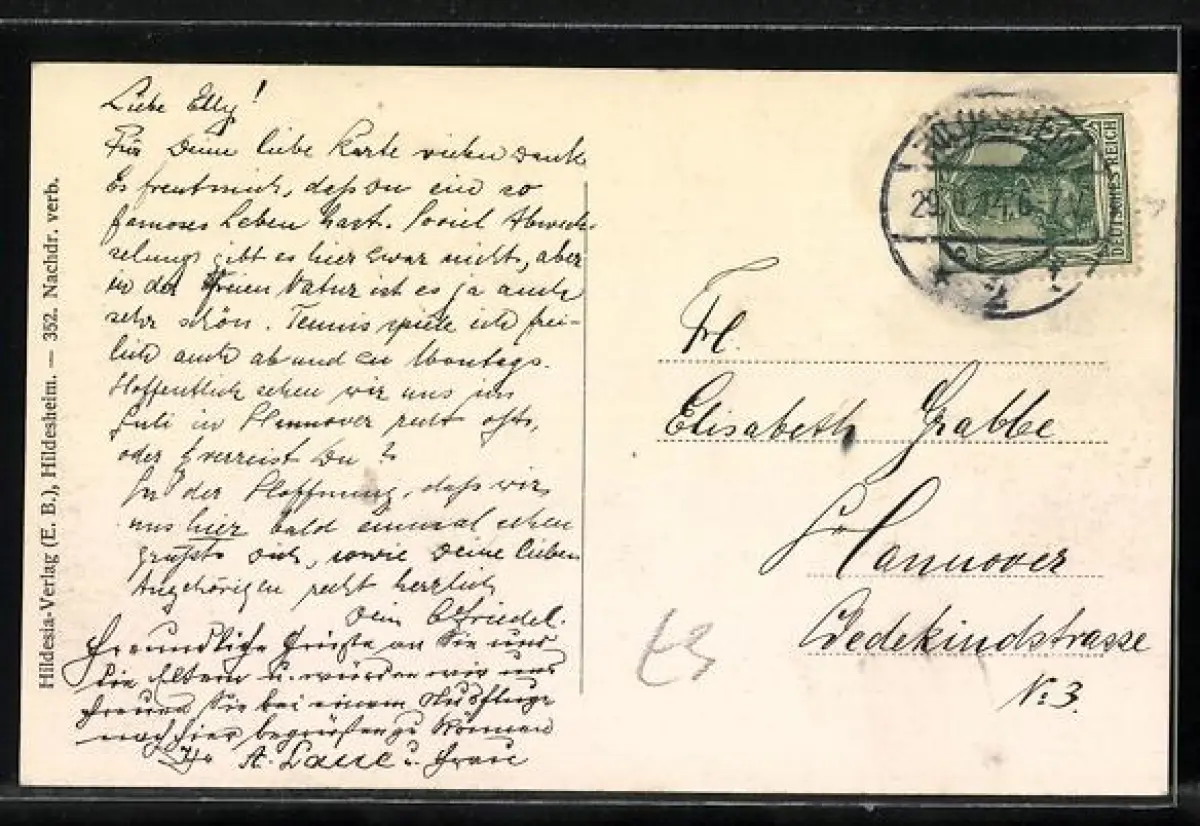 Liebe Elly!
Für Deine liebe Karte vielen Dank
Es freut mich, daß Du ein so
famoses Leben hast. Soviel Abwech-
selung gibt es hier zwar nicht, aber
in der freien Natur ist es ja auch
sehr schön. Tennis spiele ich frei-
lich auch ab und zu Montags.
Hoffentlich sehen wir uns im
Juli in Hannover recht oft,
oder verreist Du?
In der Hoffnung, daß wir
uns hier bald einmal sehen
grüßt Dich, sowie Deine lieben
Angehörigen recht herzlich
Dein Friedel.
Freundliche Grüße an Sie und
die Eltern u. würden wir uns
freuen Sie bei einem Ausfluge
nach hier begrüßen zu können
Ihr A. u. Frau
Hildesia-Verlag (E. B.), Hildesheim. — 352. Nachdr. verb.
DEUTSCHES REICH
29. 14. 6-7
* 2 *
Frl.
Elisabeth Grabbe
Hannover
Wedekindstrasse
No 3.